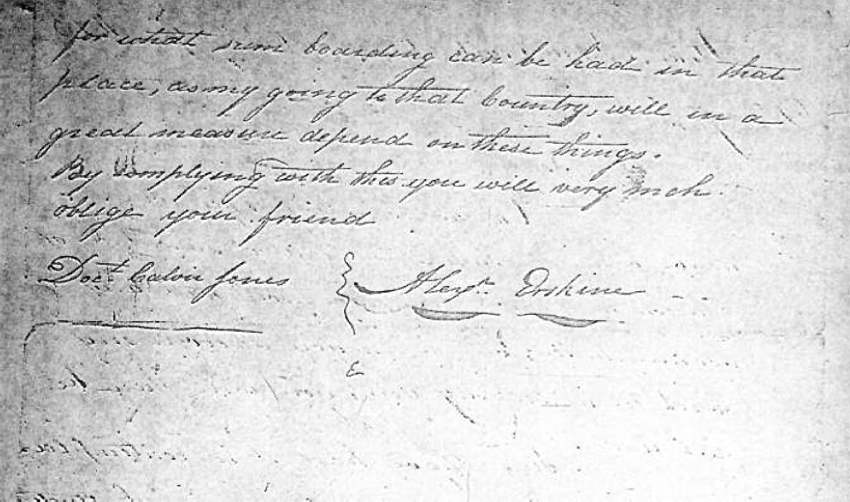 for what sum boarding can be had in that
place, as my going to that Country, will in a
great measure depend on these things.
By complying with this you will very much
oblige your friend
Doct. Calvin Jones
Alexr. Erskine